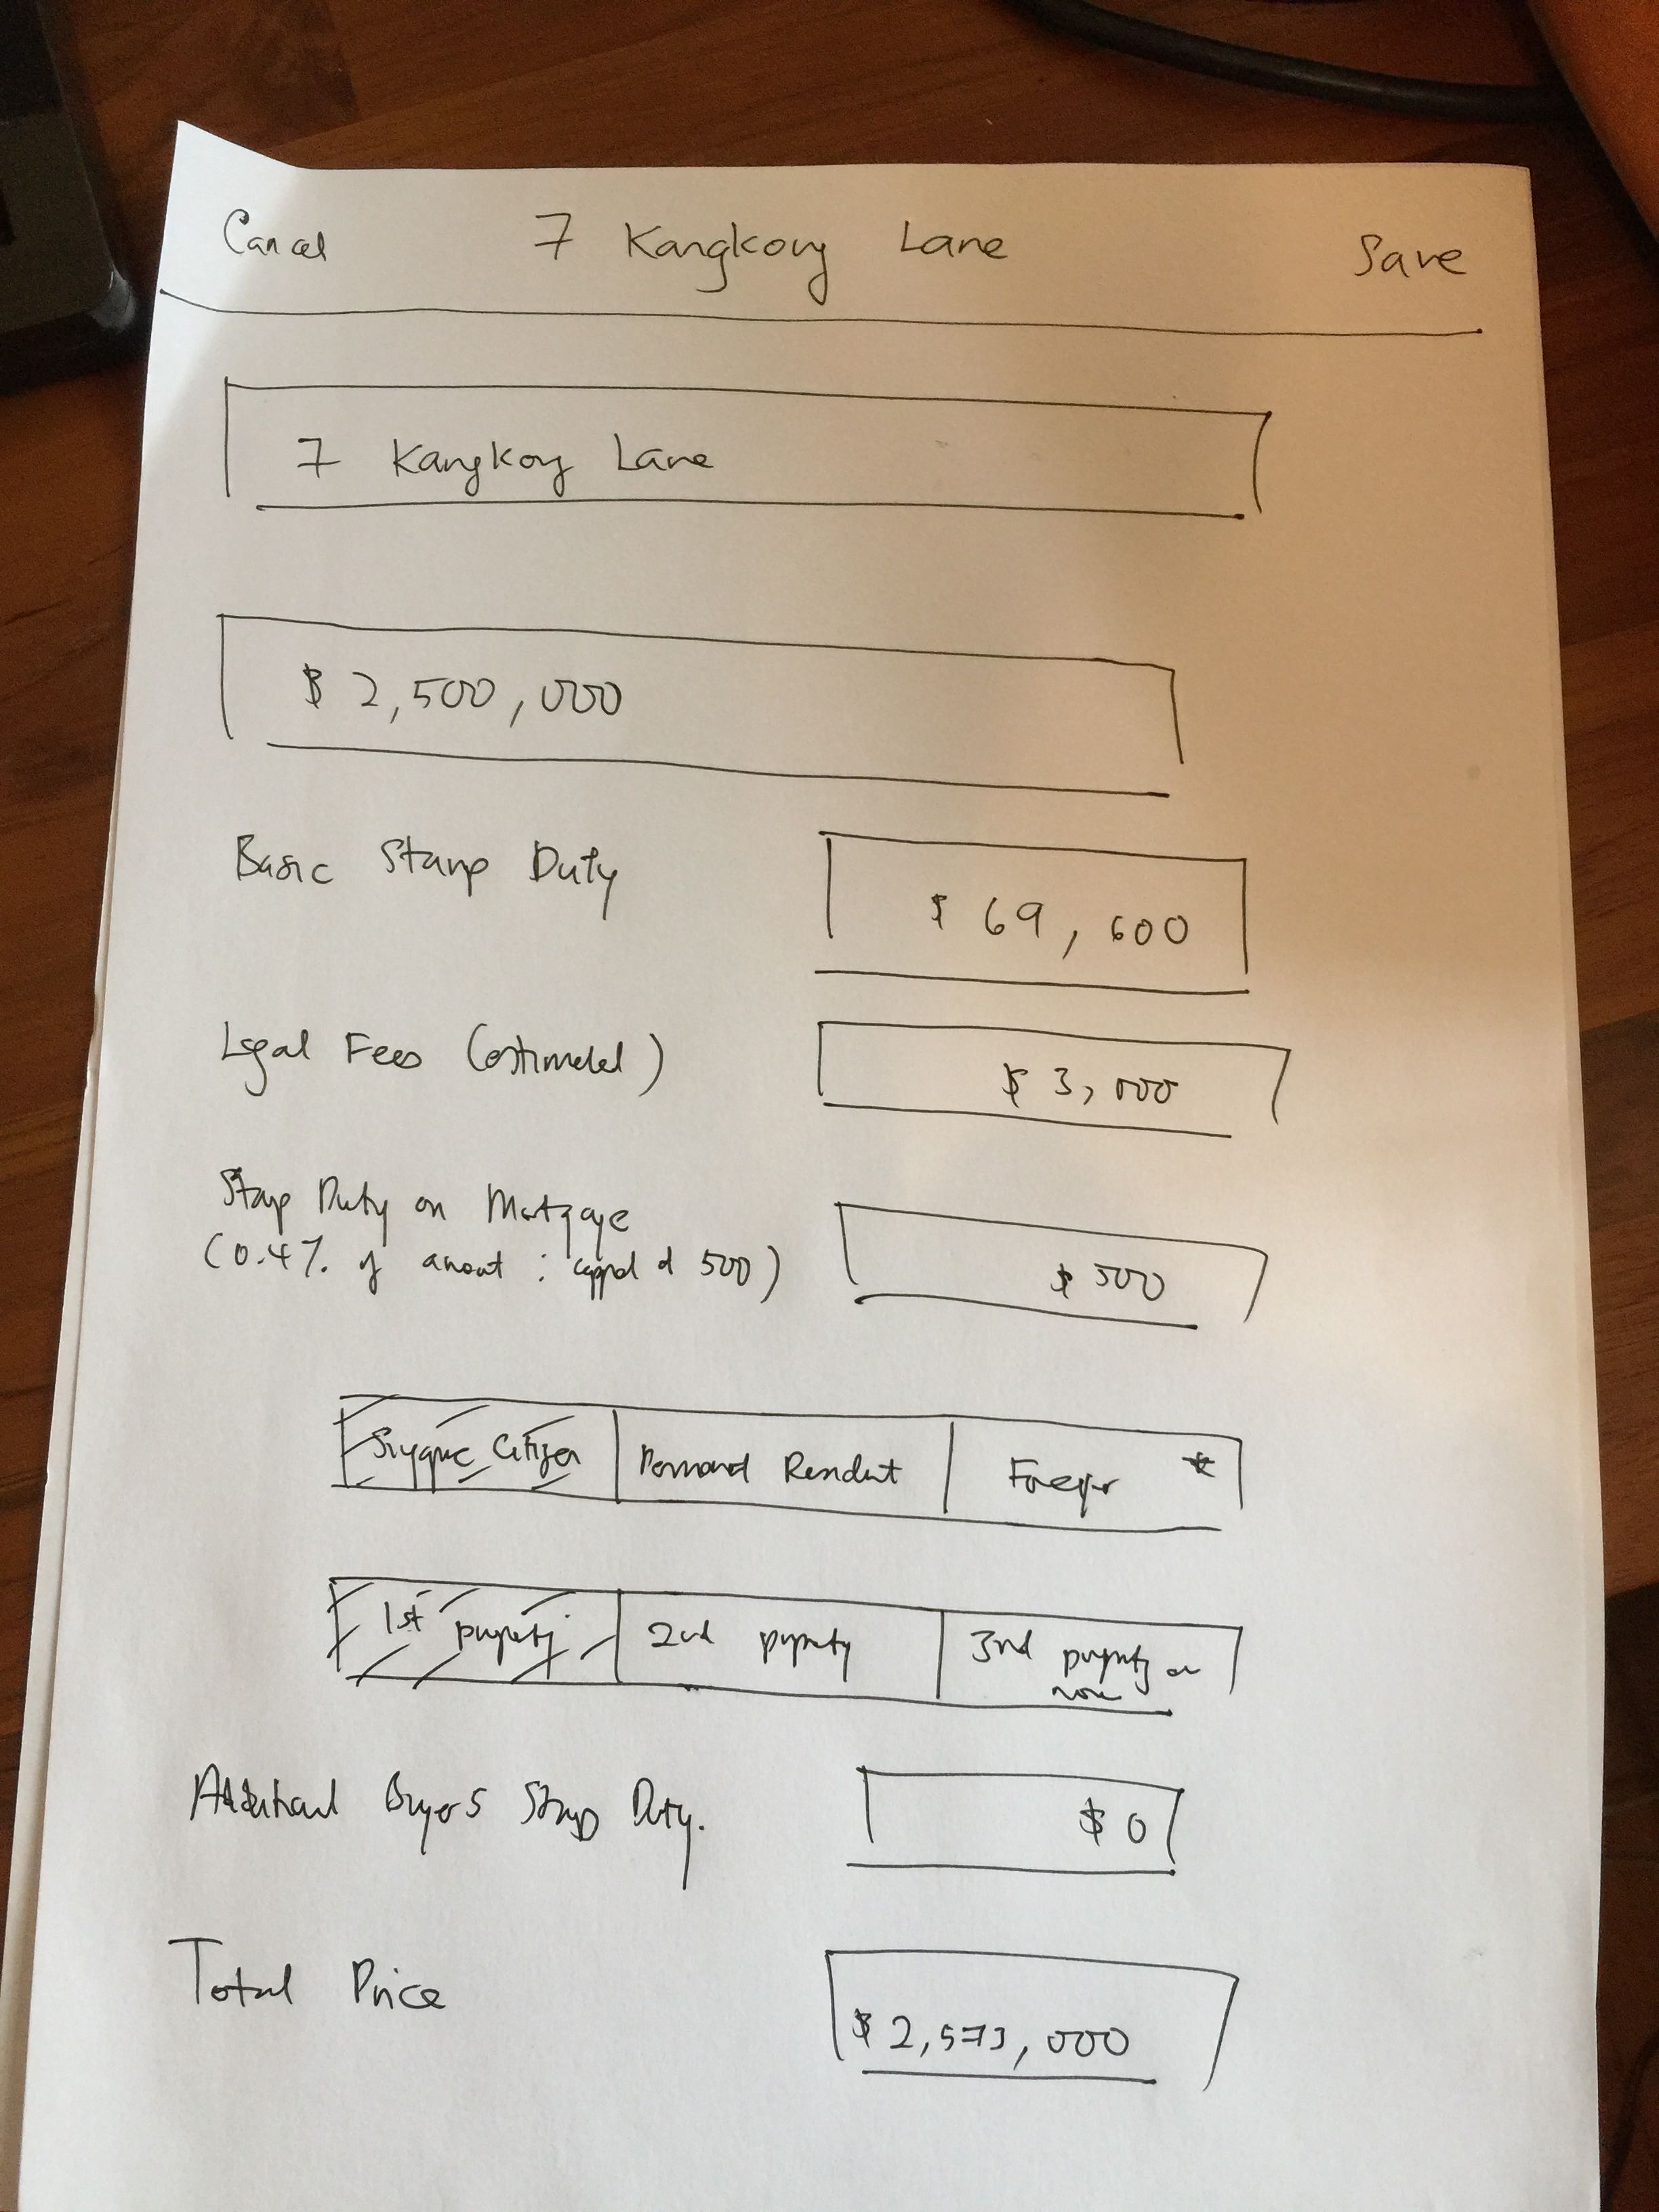 Cancel 7 Kangkong Lane Save
7 Kangkong Lane
$ 2,500,000
Basic Stamp Duty $ 69,600
Legal Fees (estimated) $ 3,000
Stamp Duty on Mortgage
(0.4% of amount : capped at 500) $ 500
Singapore Citizen Permanent Resident Foreigner *
1st property 2nd property 3rd property or
more
Additional Buyers Stamp Duty. $ 0
Total Price $ 2,573,000